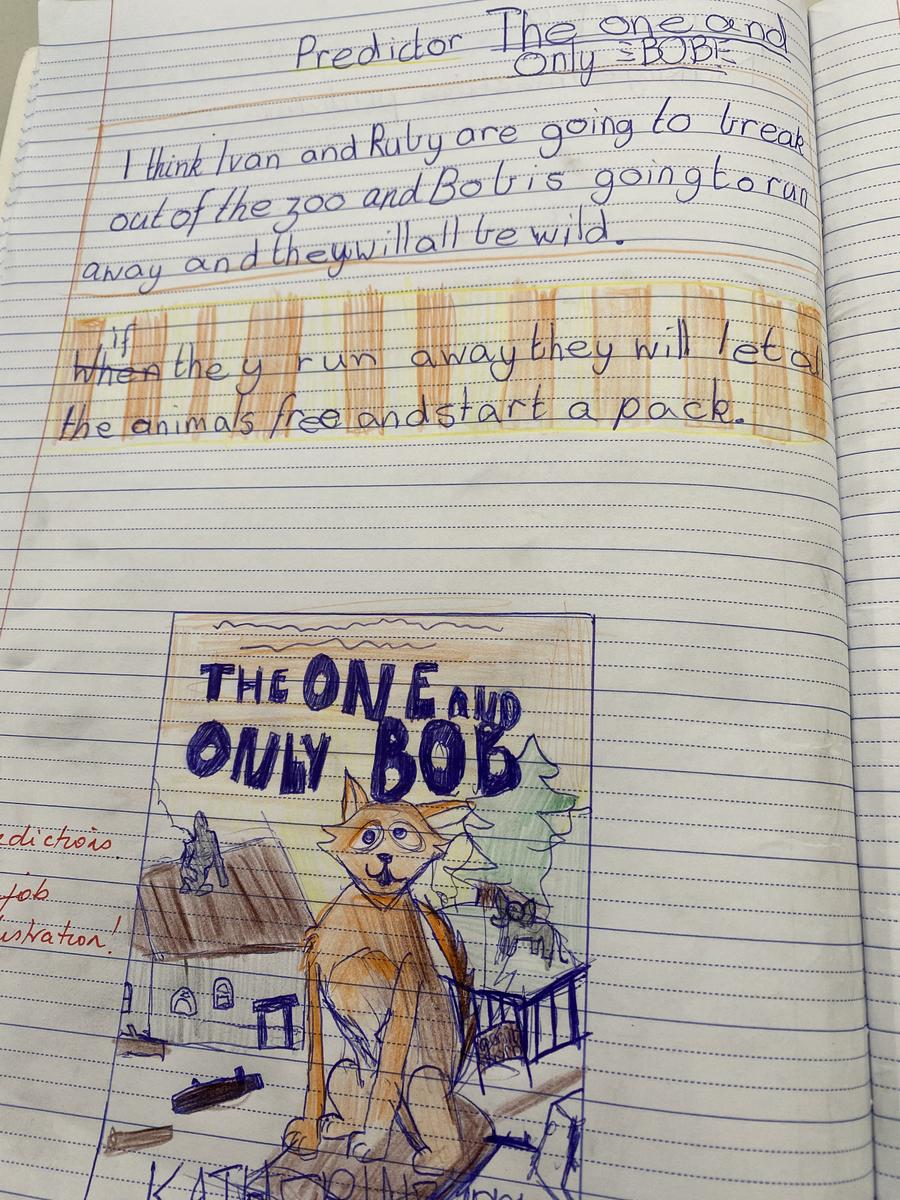 Predictor The one and
Only =BOB=
I think Ivan and Ruby are going to break
out of the zoo and Bob is going to run
away and they will all be wild.
if
When they run away they will let al
the animals free and start a pack.
THE ONE AND
ONLY BOB
edictions.
job
ustration!